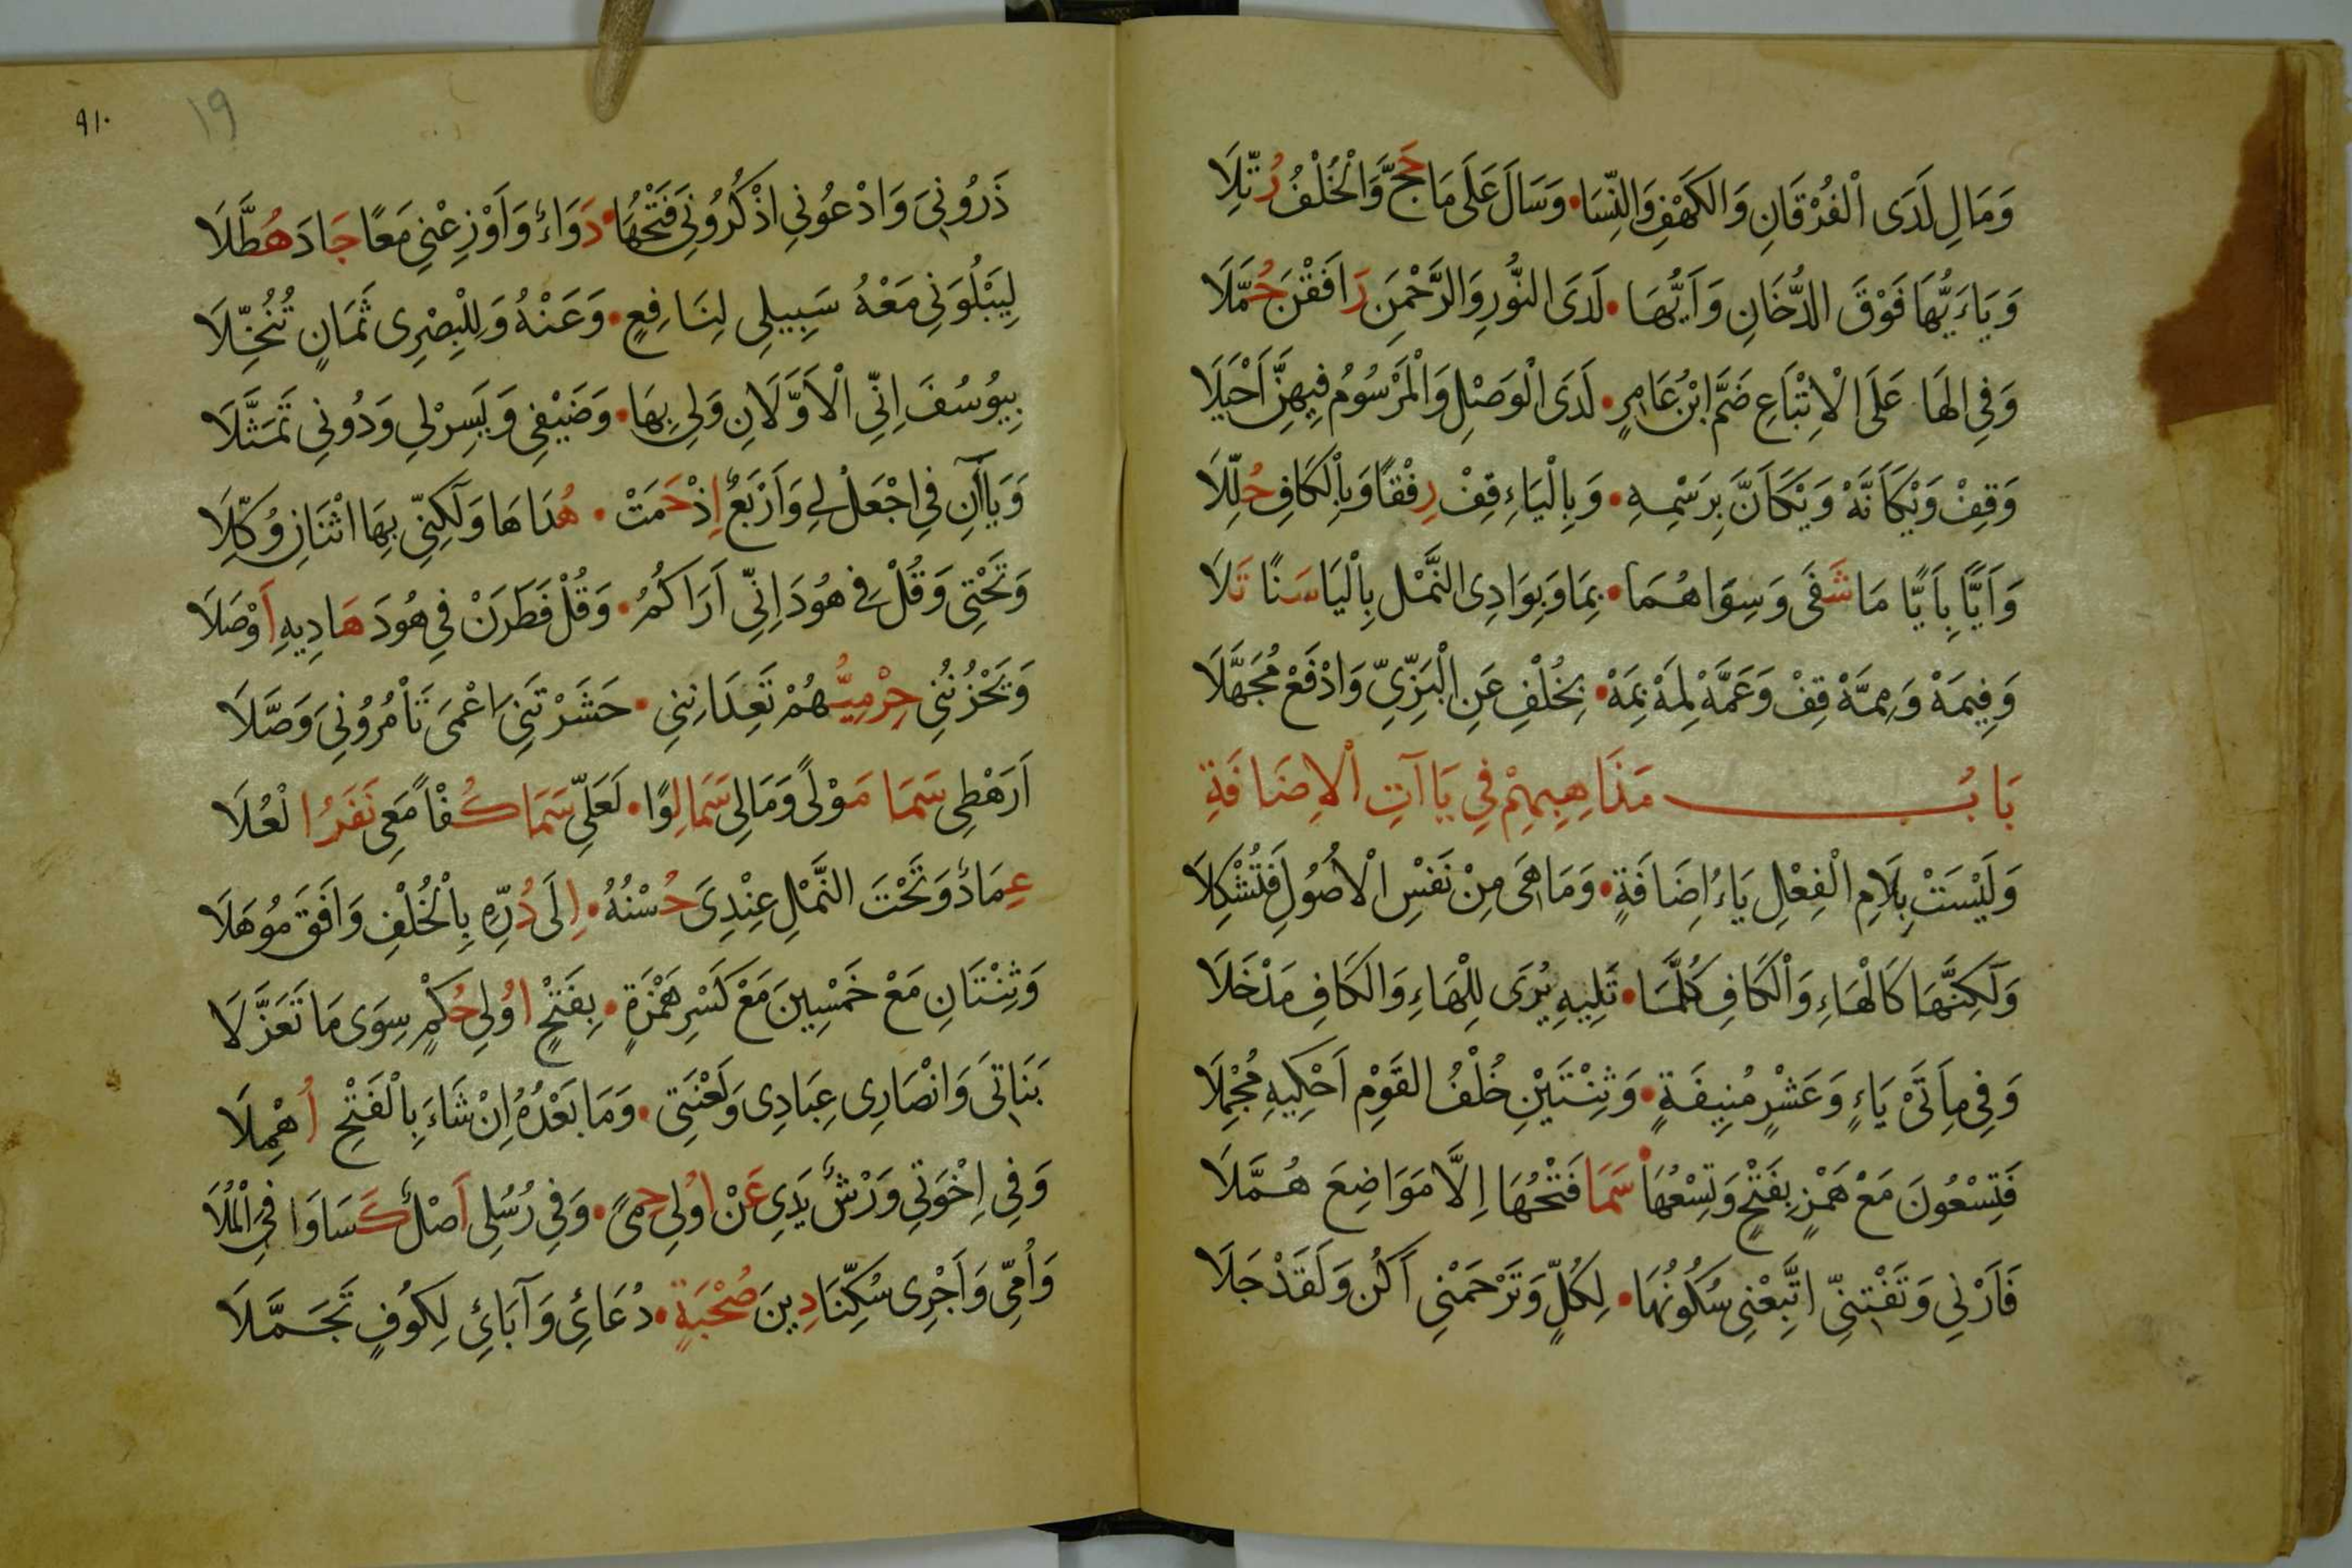 وَمَالِ لَدَى الْفُرْقَانِ وَالكَهْفِ وَالنِّسَا • وَسَالَ عَلَى مَا حَجَّ وَالْخُلْفُ رُتِّلَا
وَيَاءَيُّهَا فَوْقَ الدُّخَانِ وَاَيُّهَا • لَدَى النُّورِ وَالرَّحْمٰنِ رَافَقْنَ حُمَّلَا
وَفِي الهَا عَلَى الْاِتْبَاعِ ضَمَّ ابْنُ عَامِرٍ • لَدَى الْوَصْلِ وَالْمَرْسُومُ فِيهِنَّ اَخْيَلَا
وَقِفْ وَيْكَاَنَّهْ وَيْكَاَنَّ بِرَسْمِهِ • وَبِالْيَاءِ قِفْ رِفْقًا وَبِالْكَافِ حُلِّلَا
وَاَيًّا بِاَيًّا مَا شَفَى وَسِوَاهُمَا • بِمَا وَبِوَادِى النَّمْلِ بِالْيَا سَنًا تَلَا
وَفِيمَهْ وَمِمَّهْ قِفْ وَعَمَّهْ لِمَهْ بِمَهْ • بِخُلْفٍ عَنِ الْبَزِّيِّ وَادْفَعْ مُجَهَّلَا
بَابُ مَذَاهِبِهِمْ فِي يَاآتِ الْاِضَافَةِ
وَلَيْسَتْ بِلَامِ الْفِعْلِ يَاءُ اِضَافَةٍ • وَمَا هِيَ مِنْ نَفْسِ الْاُصُولِ فَتُشْكِلَا
وَلٰكِنَّهَا كَالْهَاءِ وَالْكَافِ كُلَّمَا • تَلِيهِ يُرَى لِلْهَاءِ وَالكَافِ مَدْخَلَا
وَفِي مِاَتَيْ يَاءٍ وَعَشْرٍ مُنِيفَةٍ • وَثِنْتَيْنِ خُلْفُ القَوْمِ اَحْكِيهِ مُجْمِلَا
فَتِسْعُونَ مَعْ هَمْزٍ بِفَتْحٍ وَتِسْعُهَا • سَمَا فَتْحُهَا اِلَّا مَوَاضِعَ هُمَّلَا
فَاَرْنِي وَتَفْتِنِّي اتَّبِعْنِي سُكُونُهَا • لِكُلٍّ وَتَرْحَمْنِي اَكُن وَلَقَدْ جَلَا
٩١٠
١٩
ذَرُونِيَ وَادْعُونِي اذْكُرُونِي فَتْحُهَا • دَوَاءٌ وَاَوْزِعْنِي مَعًا جَادَ هُطَّلَا
لِيَبْلُوَنِي مَعْهُ سَبِيلِي لِنَافِعٍ • وَعَنْهُ وَلِلْبِصْرِى ثَمَانٍ تُنُخِّلَا
بِيُوسُفَ اِنِّي الْاَوَّلَانِ وَلِي بِهَا • وَضَيْفِي وَيَسِّرْلِي وَدُونِي تَمَثَّلَا
وَيَاآنِ فِي اجْعَلْ لِي وَاَرْبَعٌ اِذْ حَمَتْ • هُدَاهَا وَلٰكِنِّي بِهَا اثْنَانِ وُكِّلَا
وَتَحْتِي وَقُلْ فِي هُودَ اِنِّي اَرَاكُمُ • وَقُلْ فَطَرَنْ فِي هُودَ هَادِيهِ اَوْصَلَا
وَيَحْزُنُنِي حِرْمِيُّهُمْ تَعِدَانِنِي • حَشَرْتَنِي اَعْمَى تَاْمُرُونِيَ وَصَّلَا
اَرَهْطِي سَمَا مَوْلًى وَمَالِي سَمَا لِوًا • لَعَلِّي سَمَا كُفْاً مَعِي نَفَرُ الْعُلَا
عِمَادٌ وَتَحْتَ النَّمْلِ عِنْدِيَ حُسْنُهُ • اِلَى دُرِّهِ بِالْخُلْفِ وَافَقَ مُوهَلَا
وَثِنْتَانِ مَعْ خَمْسِينَ مَعْ كَسْرِ هَمْزَةٍ • بِفَتْحٍ اُولِي حُكْمٍ سِوَى مَا تَعَزَّلَا
بَنَاتِي وَانْصَارِى عِبَادِى وَلَعْنَتِي • وَمَا بَعْدَهُ اِنْ شَاءَ بِالْفَتْحِ اُهْمِلَا
وَفِي اِخْوَتِي وَرْشٌ يَدِي عَنْ اُولِي حِمًى • وَفِي رُسُلِي اَصْلٌ كَسَا وَافِيَ الْمُلَا
وَاُمِّي وَاَجْرِى سُكِّنَا دِينَ صُحْبَةٍ • دُعَائِي وَآبَائِي لِكُوفٍ تَجَمَّلَا